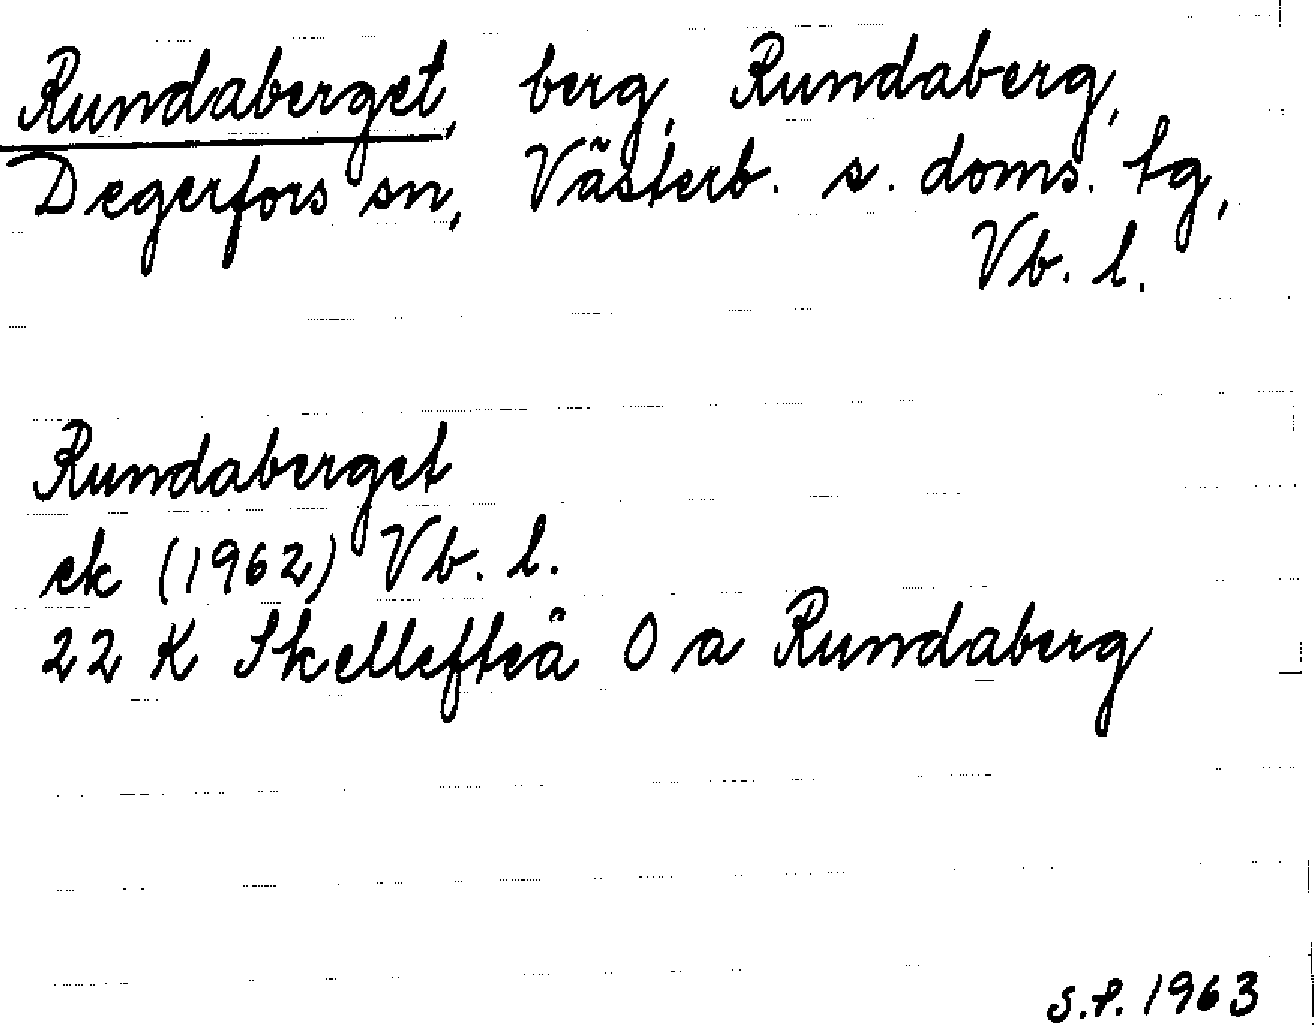 Rundaberget, berg, Rundaberg,
Degerfors sn, Västerb. s. doms. tg,
Vb. l.
Rundaberget
ek (1962) Vb. l.
22 K Skellefteå O a Rundaberg
S.P. 1963